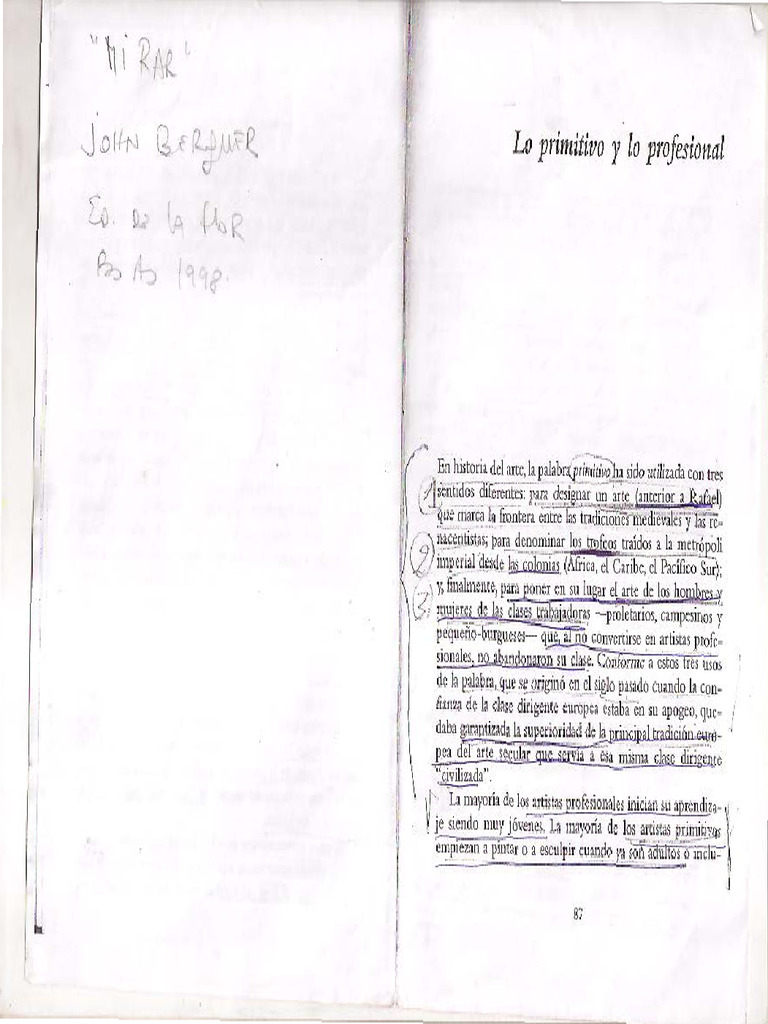 "MIRAR"
JOHN BERGUER
Ed. de la flor
Bs As 1998.
Lo primitivo y lo profesional
En historia del arte, la palabra primitivo ha sido utilizada con tres
1 sentidos diferentes: para designar un arte (anterior a Rafael)
que marca la frontera entre las tradiciones medievales y las re-
2 nacentistas; para denominar los trofeos traídos a la metrópoli
imperial desde las colonias (Africa, el Caribe, el Pacífico Sur);
3 y, finalmente, para poner en su lugar el arte de los hombres y
mujeres de las clases trabajadoras —proletarios, campesinos y
pequeño-burgueses— que, al no convertirse en artistas profe-
sionales, no abandonaron su clase. Conforme a estos tres usos
de la palabra, que se originó en el siglo pasado cuando la con-
fianza de la clase dirigente europea estaba en su apogeo, que-
daba garantizada la superioridad de la principal tradición euro-
pea del arte secular que servía a esa misma clase dirigente
"civilizada".
La mayoría de los artistas profesionales inician su aprendiza-
je siendo muy jóvenes. La mayoría de los artistas primitivos
empiezan a pintar o a esculpir cuando ya son adultos o inclu-
87